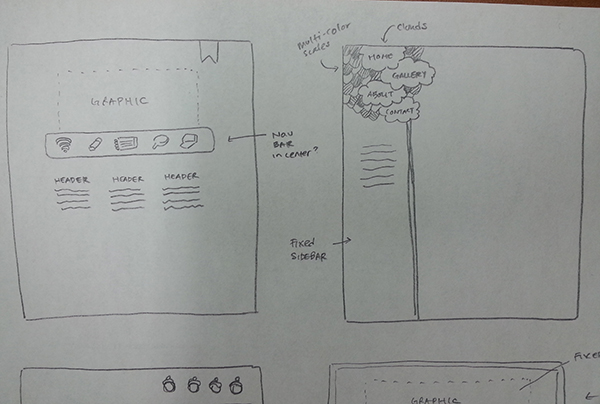 GRAPHIC
NAV
BAR
in center?
HEADER HEADER HEADER
multi-color
scales
clouds
HOME
GALLERY
ABOUT
CONTACT
FIXED
SIDEBAR
FIXED
GRAPHIC